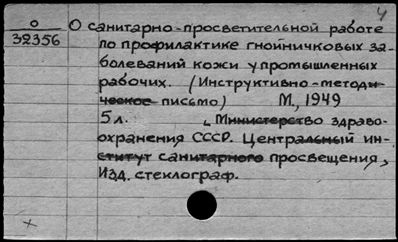 4
О
32356
О санитарно-просветительной работе
по профилактике гнойничковых за-
болеваний кожи у промышленных
рабочих. (Инструктивно-методи-
ческое письмо) М., 1949
5 л. (Министерство здраво-
охранения СССР. Центральный ин-
ститут санитарного просвещения,
Изд. стеклограф.
+